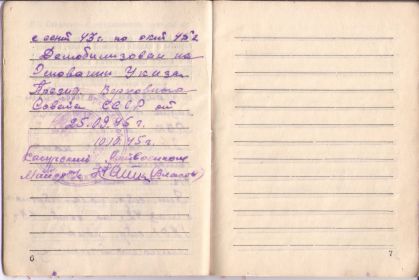 с сент 43г. по окт 45г
Демобилизован на
Основании Указа
Презид. Верховного
Совета СССР от
25.09.45 г.
10.10.45г.
Райвоенком
Майор (Власов)
6
7